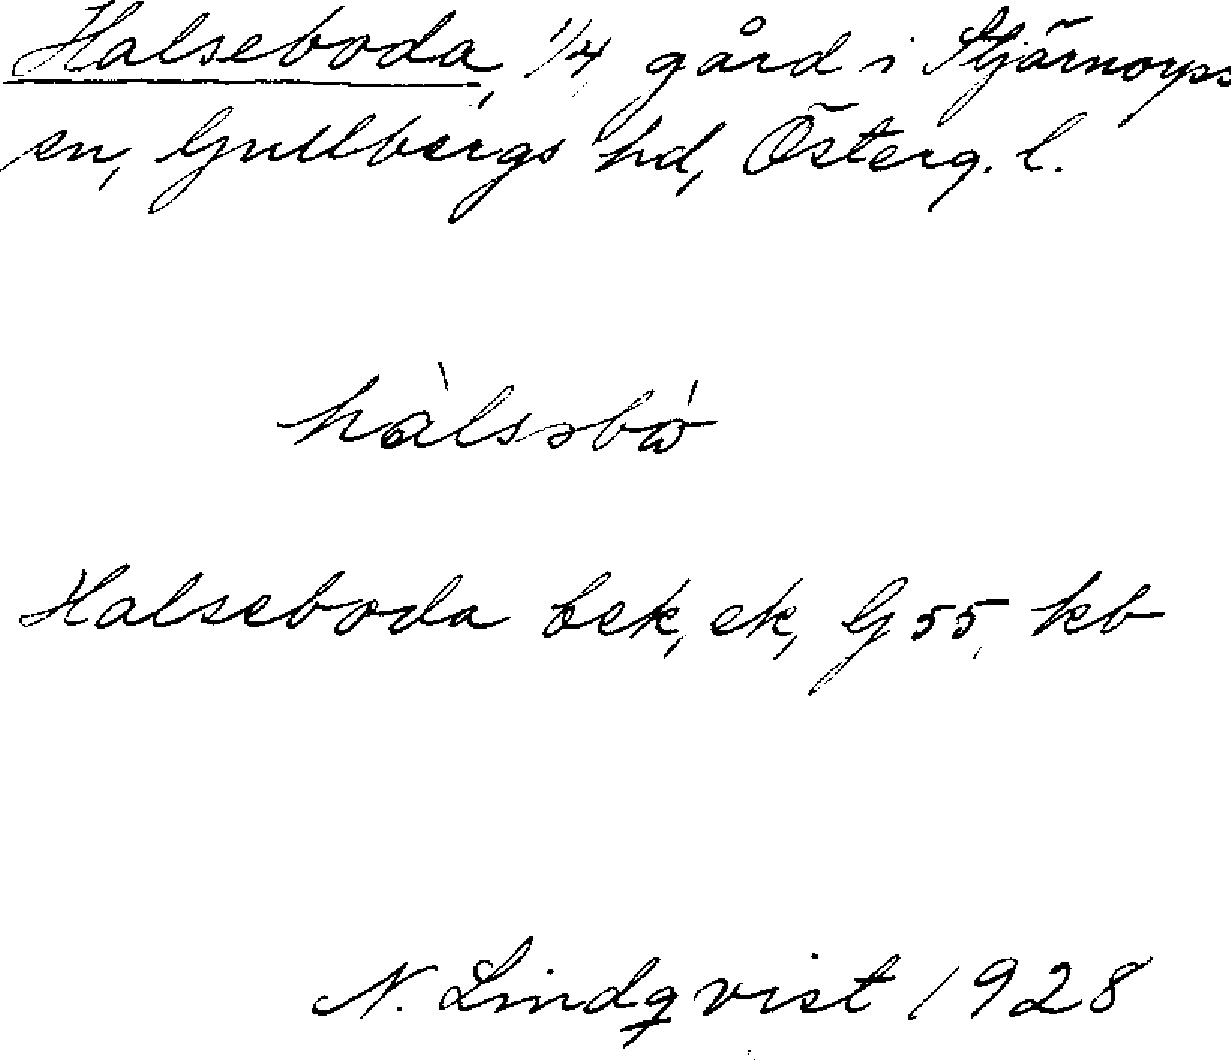 Halseboda, 1/4 gård i Stjärnorps
sn, Gullbergs hd, Österg. l.
hàlsəbó
Halseboda bek, ek, G 55, kb
N. Lindqvist 1928